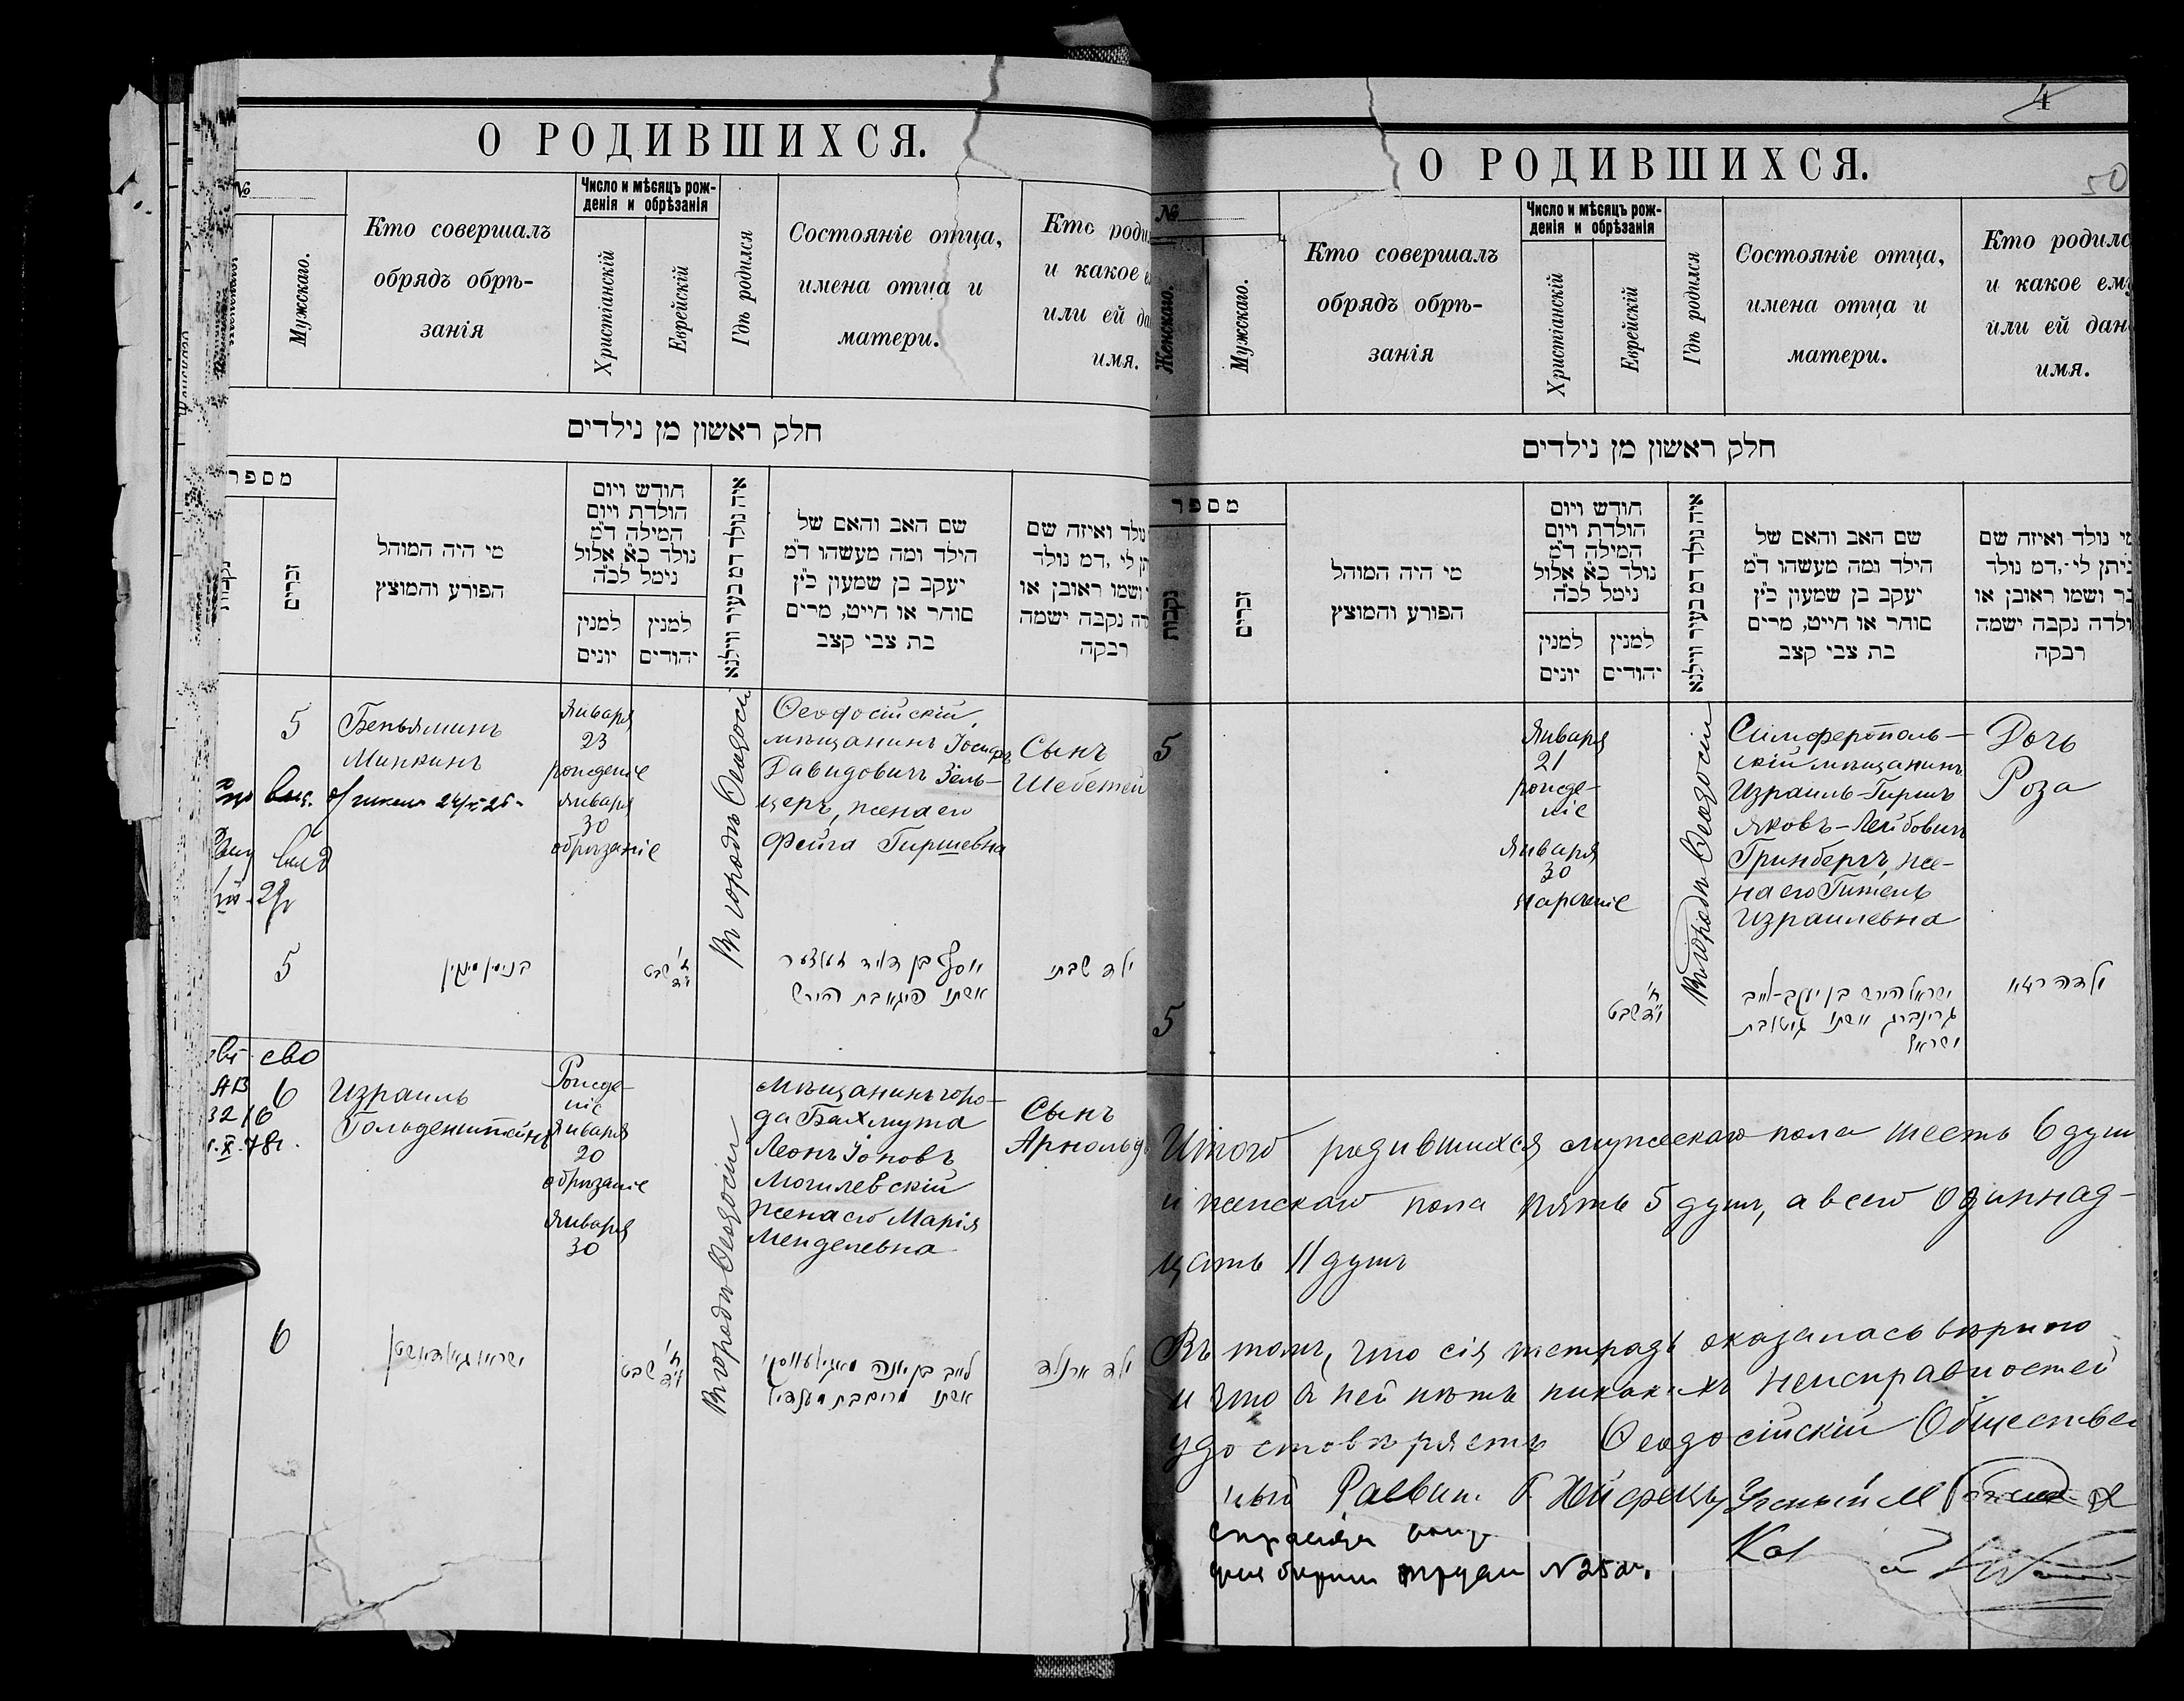 О РОДИВШИХСЯ.
№
Мужскаго.
Кто совершалъ
обрядъ обрѣ-
занія
Число и мѣсяцъ рож-
денія и обрѣзанія
Христіанскій
Еврейскій
Гдѣ родился
Состояніе отца,
имена отца и
матери.
Кто роди
и какое е
или ей да
имя.
חלק ראשון מן נילדים
מספר
נקבות
זכרים
מי היה המוהל
הפורע והמוצץ
חודש ויום
הולדת ויום
המילה ד״מ
נולד כ״א אלול
נימל לכ״ה
למנין
יונים
למנין
יהודים
איה נולד דמ בעיר ווילנא
שם האב והאם של
הילד ומה מעשהו ד״מ
יעקב בן שמעון כ״ץ
סוחר או חייט, מרים
בת צבי קצב
נולד ואיזה שם
תן לי, דמ נולד
ושמו ראובן או
דה נקבה ישמה
רבקה
5
Беньяминъ
Минкинъ
Января
23
рожденіе
Января
30
обрѣзаніе
Въ городѣ Ѳеодосіи
Ѳеодосійскій
мѣщанинъ Іосифъ
Давидовичъ Зель-
церъ, жена его
Фейга Гиршевна
Сынъ
Шебетей
5
בנימין מינקין
י״ד שבט
יוסף בן דוד זעלצער
אשתו פיגא בת הירש
ילד שבתי
6
Израиль
Гольденштейнъ
Рожде-
ніе
Января
20
обрѣзаніе
Января
30
Въ городѣ Ѳеодосіи
Мѣщанинъ горо-
да Бахмута
Леонъ Іоновъ
Могилевскій
жена его Марія
Менделевна
Сынъ
Арнольдъ
6
ישראל גאלדענשטיין
י״ד שבט
לייב בן יונה מאגילעווסקי
אשתו מרים בת מענדיל
ילד ארנולד
4
О РОДИВШИХСЯ.
50
№
Женскаго.
Мужскаго.
Кто совершалъ
обрядъ обрѣ-
занія
Число и мѣсяцъ рож-
денія и обрѣзанія
Христіанскій
Еврейскій
Гдѣ родился
Состояніе отца,
имена отца и
матери.
Кто родилс
и какое ему
или ей дан
имя.
חלק ראשון מן נילדים
מספר
נקבות
זכרים
מי היה המוהל
הפורע והמוצץ
חודש ויום
הולדת ויום
המילה ד״מ
נולד כ״א אלול
נימל לכ״ה
למנין
יונים
למנין
יהודים
איה נולד דמ בעיר ווילנא
שם האב והאם של
הילד ומה מעשהו ד״מ
יעקב בן שמעון כ״ץ
סוחר או חייט, מרים
בת צבי קצב
מי נולד ואיזה שם
ניתן לי, דמ נולד
בר ושמו ראובן או
ילדה נקבה ישמה
רבקה
5
Января
21
рожде-
ніе
Января
30
нареченіе
Въ городѣ Ѳеодосіи
Симферополь-
скій мѣщанинъ
Израиль-Гиршъ
Яковъ-Лейбовичъ
Гринбергъ, же-
на его Гитель
Израилевна
Дочь
Роза
5
י״ד שבט
ישראל הירש בן יעקב-לייב
גרינברג אשתו גיטל בת
ישראל
ילדה רוזא
Итого родившихся мужескаго пола шесть 6 душъ
и женскаго пола пять 5 душъ, а всего одиннад-
цать 11 душъ
Въ томъ, что сія тетрадь оказалась вѣрною
и что въ ней нѣтъ никакихъ неисправностей
удостовѣряетъ Ѳеодосійскій Обществен
ный Раввинъ Ученый